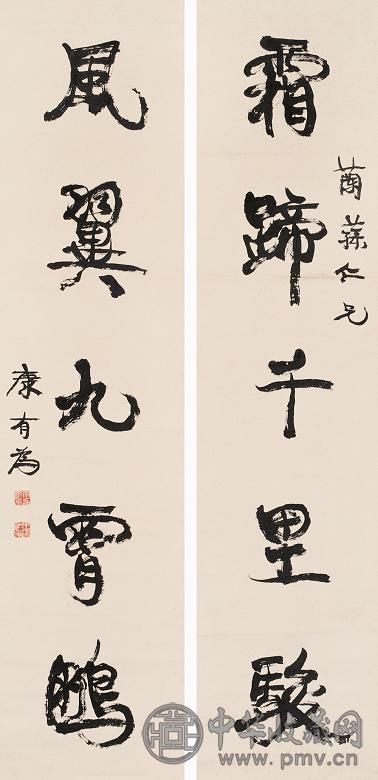 霜蹄千里駿
蘭蓀仁兄
風翼九霄鵬
康有為
中华收藏网
www.pmv.cn